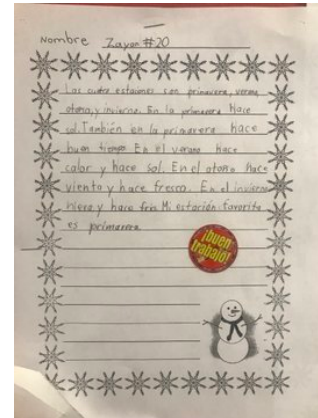 Nombre Zayan #20
Las cuatro estaiones son primavera, verano,
otoño, y invierno. En la primavera Hace
sol. También en la primavera hace
buen tiempo En el verano hace
calor y hace sol. En el otoño hace
viento y hace fresco. En el invierno
nieva y hace frío Mi estación favorita
es primavera.
¡buen
trabajo!